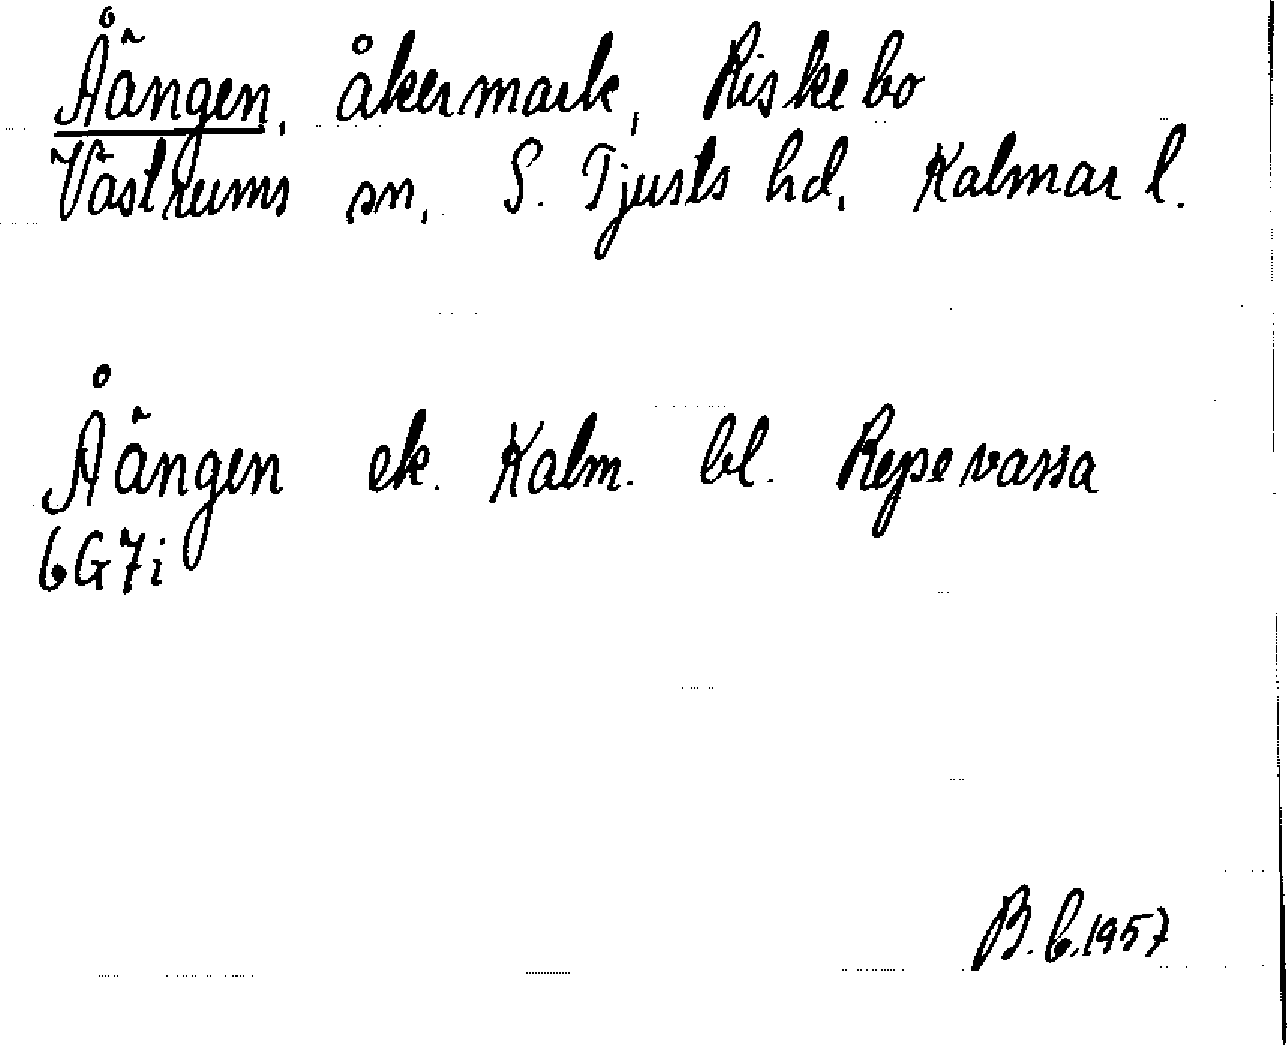 Åängen, åkermark, Riskebo
Västrums sn, S. Tjusts hd, Kalmar l.
Åängen ek. Kalm. bl. Repevassa
6G7i
B.G.1957